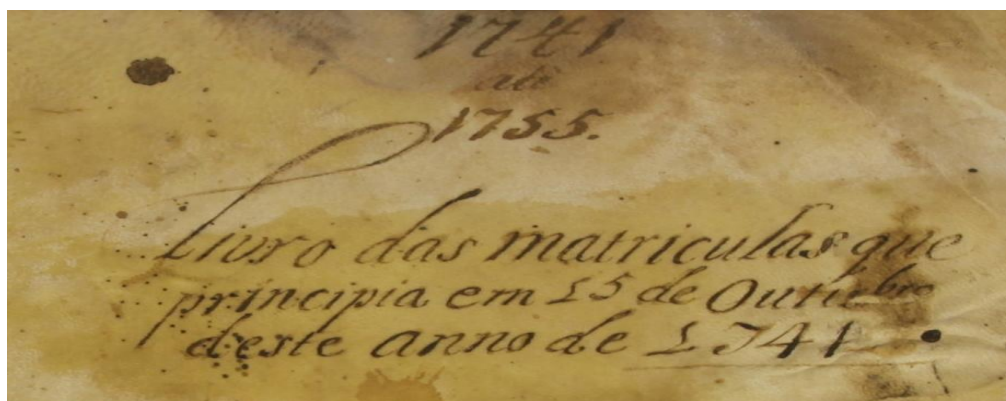 1741
até
1755.
Livro das matriculas que
principia em 15 de Outubro
deste anno de 1741